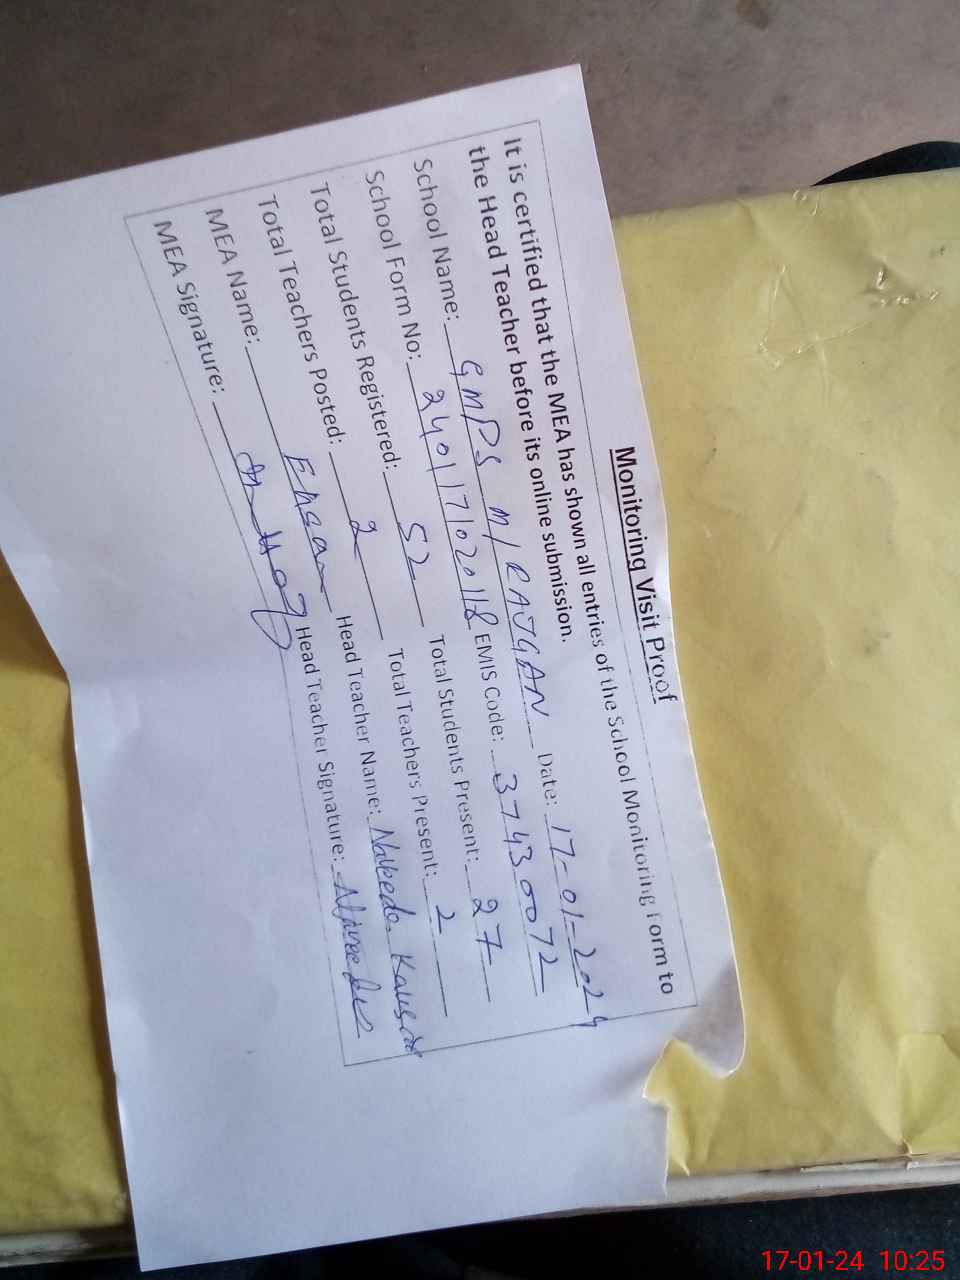 Monitoring Visit Proof
It is certified that the MEA has shown all entries of the School Monitoring Form to
the Head Teacher before its online submission.
School Name: GMPS M/RAJGAN Date: 17-01-2024
School Form No: 240117102018 EMIS Code: 37430072
Total Students Registered: 52 Total Students Present: 27
Total Teachers Posted: 2 Total Teachers Present: 2
MEA Name: Ehsan Head Teacher Name: Kausar
MEA Signature: Head Teacher Signature:
17-01-24 10:25